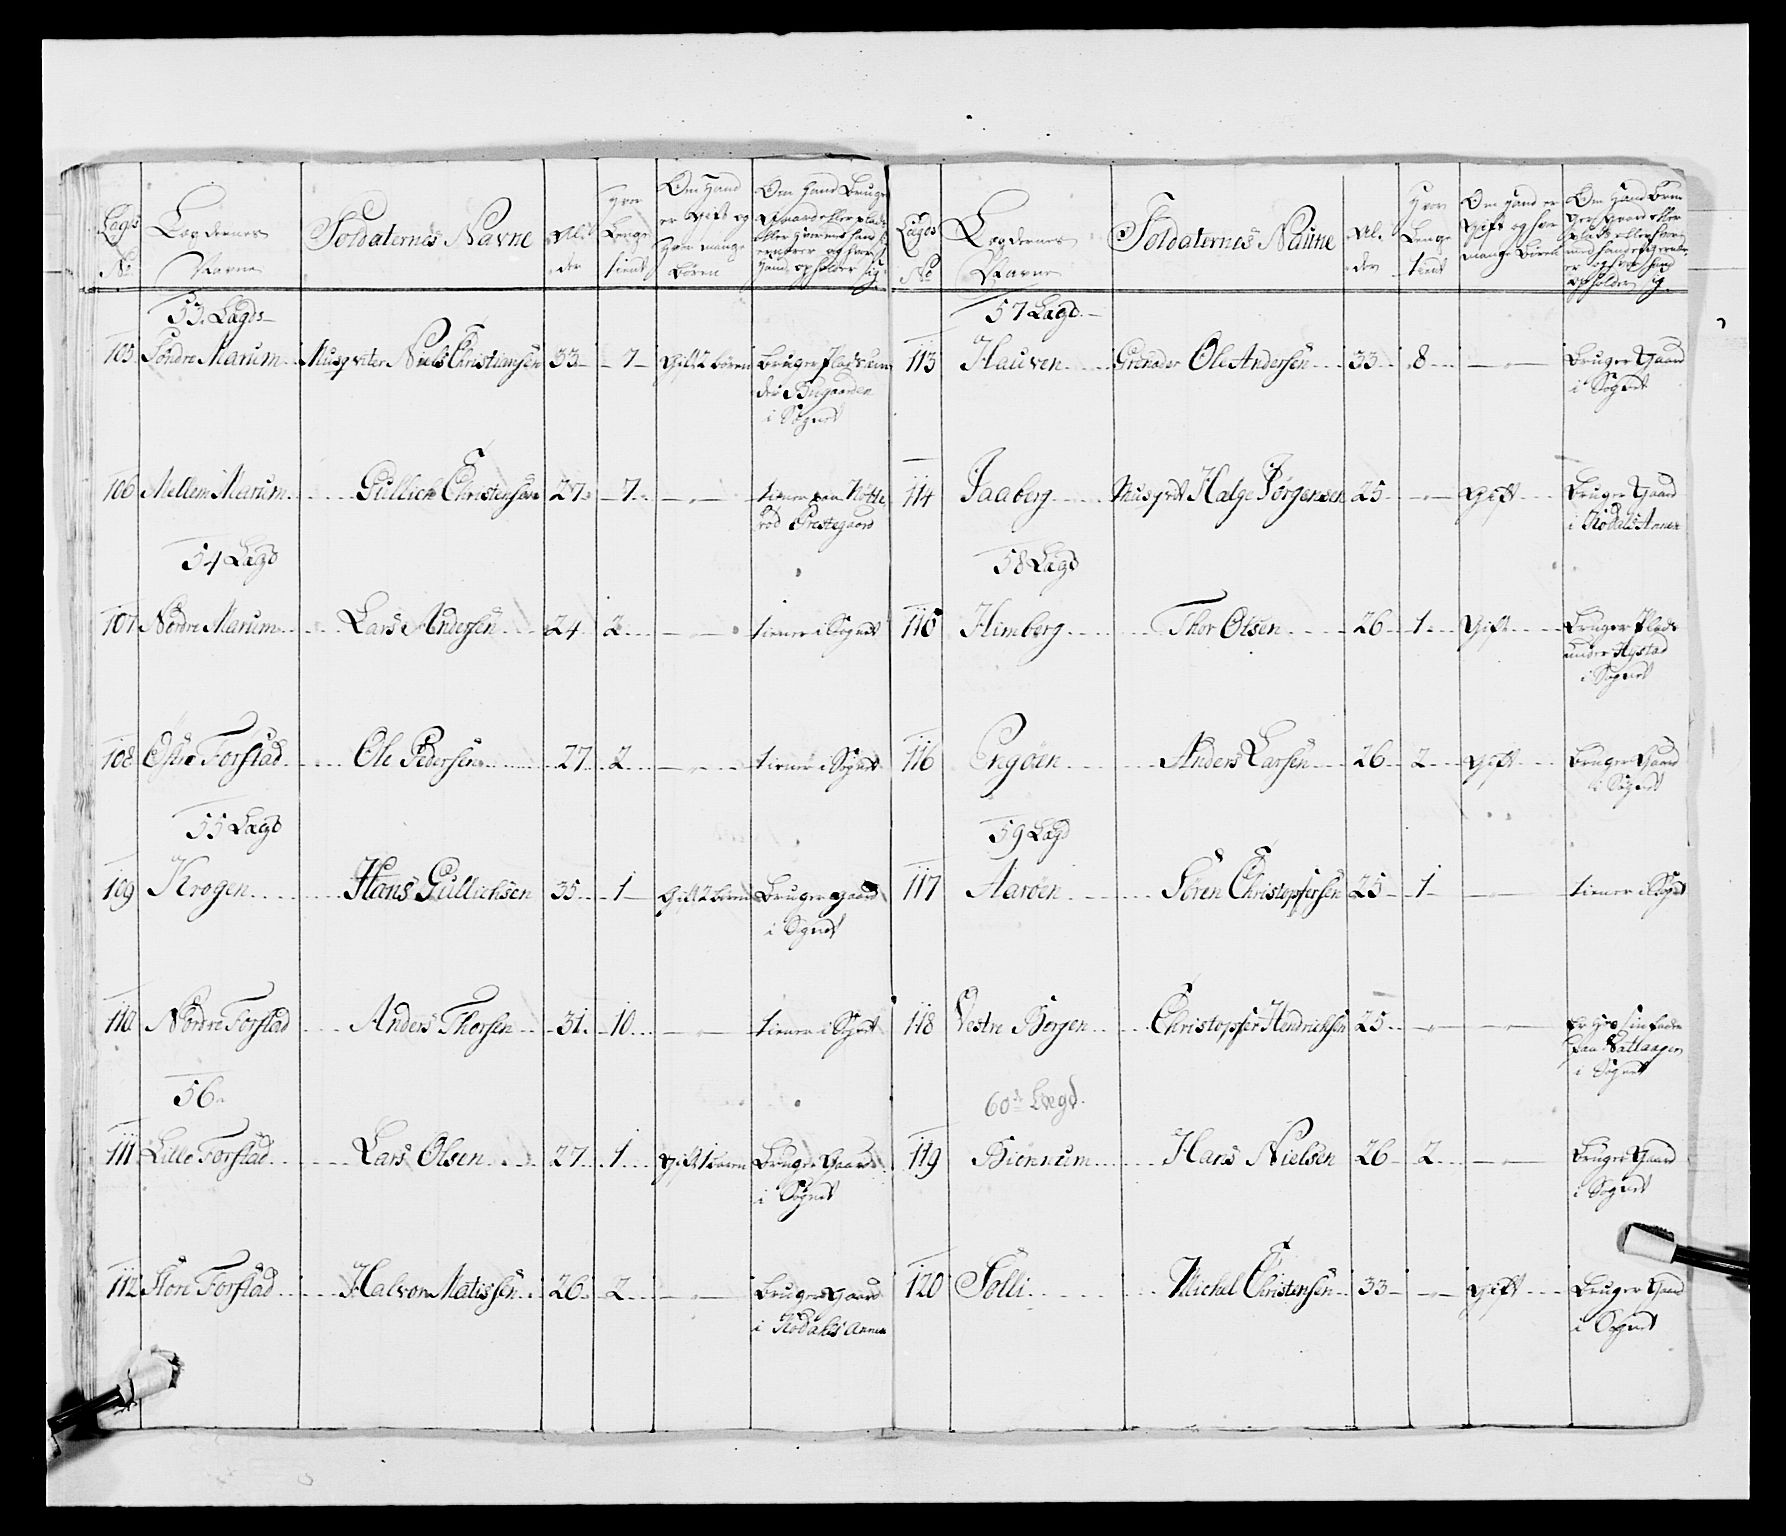 Lægs No
Lægdernes Navne
Soldaternes Navne
Al. der
Hvor Længe tient
Om Hand er Gift og Hvor mange Børen
Om Hand Bruger Gaard eller plads eller Hvormed hand sig ernærer og hvor hand opholder sig.
53. Lægd
105 Søndre Marum Musqviter Niels Christiansen 33 7 Gift 2 børen Bruger Plads un
der Brugaarden
i Sognet
106 Mellem Marum Gullich Christensen 27 7 — tiener paa
Prestegaard
54 Lægd
107 Nordre Marum Lars Andersen 24 2 — tiener i Sognet
108 Østre Forstad Ole Pedersen 27 2 — tiener i Sognet
55 Lægd
109 Krogen Hans Gullichsen 35 1 Gift 2 børen Bruger gaard
i Sognet
110 Nordre Forstad Anders Thorsen 31 10 — tiener i Sognet
56
111 Lille Forstad Lars Olsen 27 1 Gift 1 barn Bruger Gaard
i Sognet
112 Store Forstad Halvor Matissen 26 2 — Bruger Gaard
i Kodals Annex
Lægds No
Lægdernes Navne
Soldaternes Naune
Al. der
Hvor Længe tient
Om Hand er Gift og hvor mange Børen
Om Hand Bru
ger Gaard eller
plads eller hvor
med hand sig ernærer
og hvor hand
opholder sig.
57 Lægd
113 Hauven Grenader Ole Andersen 33 8 — Bruger Gaard
i Sognet
114 Jaaberg Musqvt Helge Jørgensen 25 — Gift Bruger Gaard
i Kodals Annex
58 Lægd
115 Himberg Thor Olsen 26 1 Gift Bruger Plads
under Nystad
i Sognet
116 Engøen Anders Larsen 26 2 Gift Bruger Gaard
i Sognet
59 Lægd
117 Aarøen Søren Christophersen 25 1 — tiener i Sognet
118 Vestre Bergen Christopher Hendrichsen 25 — — Er hos sin fader
paa
i Sognet
60de Lægd.
119 Biønnum Hans Nielsen 26 2 — Bruger Gaard
i Sognet
120 Solli Michel Christensen 33 — Gift Bruger Gaard
i Sognet